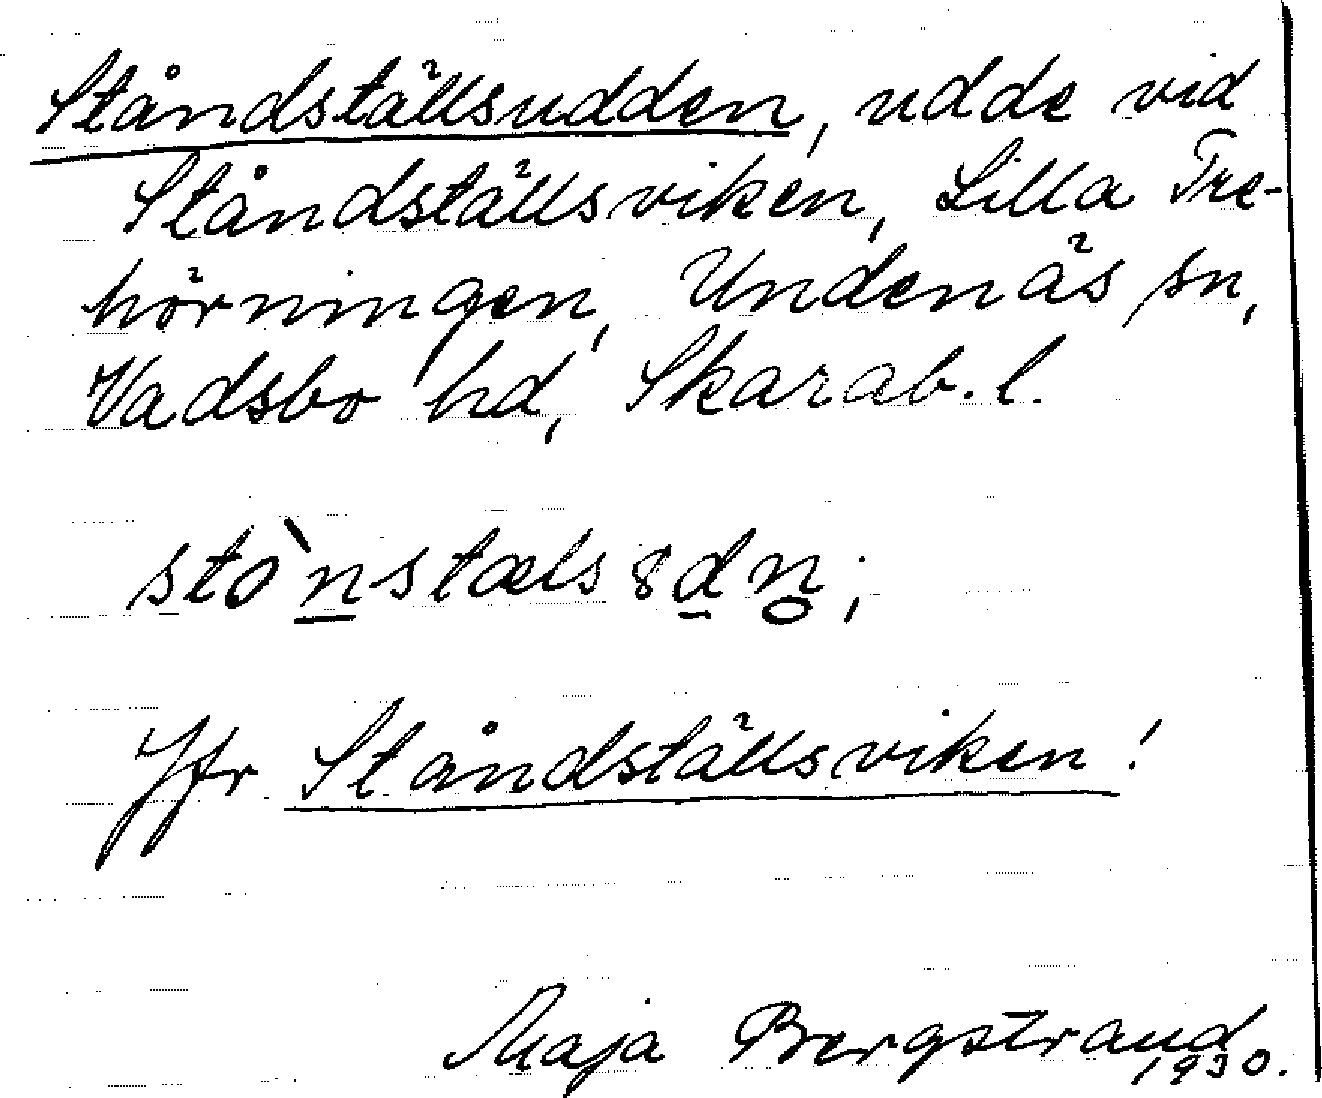 Ståndställsudden, udde vid
Ståndställsviken, Lilla Tre-
hörningen, Undenäs sn,
Vadsbo hd, Skarab. l.
stò̀nstælsȣdn̥;
Jfr Ståndställsviken!
Maja Bergstrand
1930.